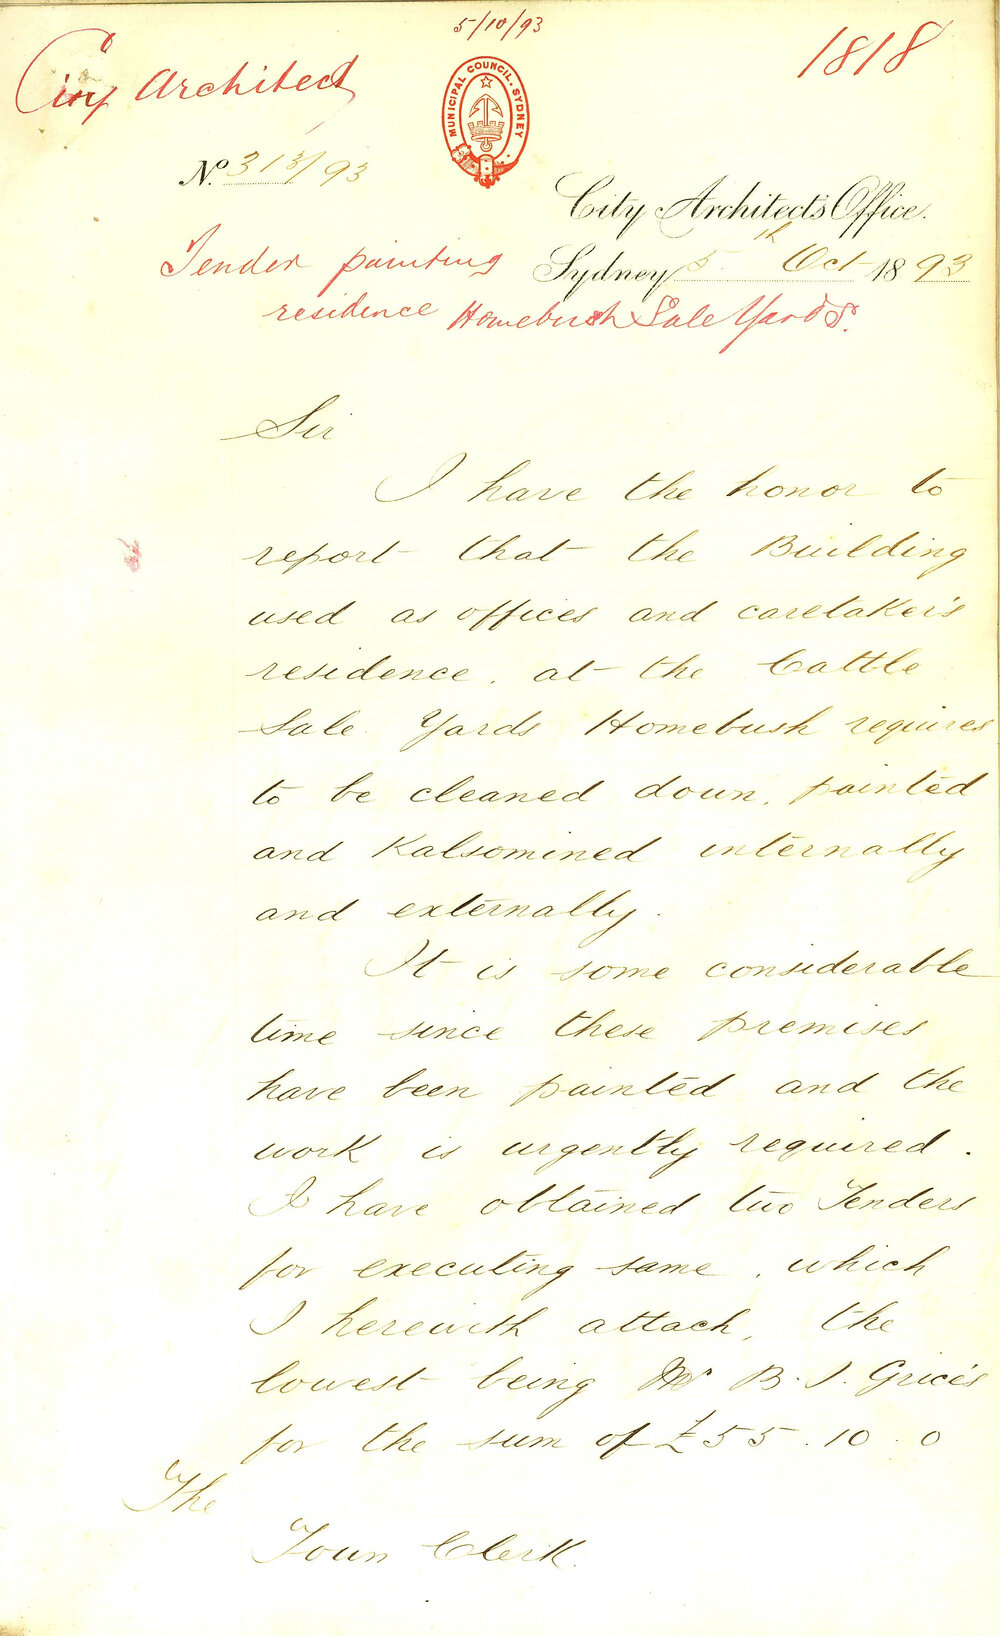 5/10/93
1818
City Architect
MUNICIPAL COUNCIL. SYDNEY
No. 313/93
City Architect's Office.
Sydney 5th Oct 1893
Tender painting
residence Homebush Sale Yards.
Sir
I have the honor to
report that the Building
used as offices and caretaker's
residence. at the Cattle
Sale Yards Homebush requires
to be cleaned down, painted
and Kalsomined internally
and externally.
It is some considerable
time since these premises
have been painted and the
work is urgently required.
I have obtained two Tenders
for executing same, which
I herewith attach, the
lowest being Mr B. J. Grice's
for the sum of £55.10.0
The
Town Clerk.